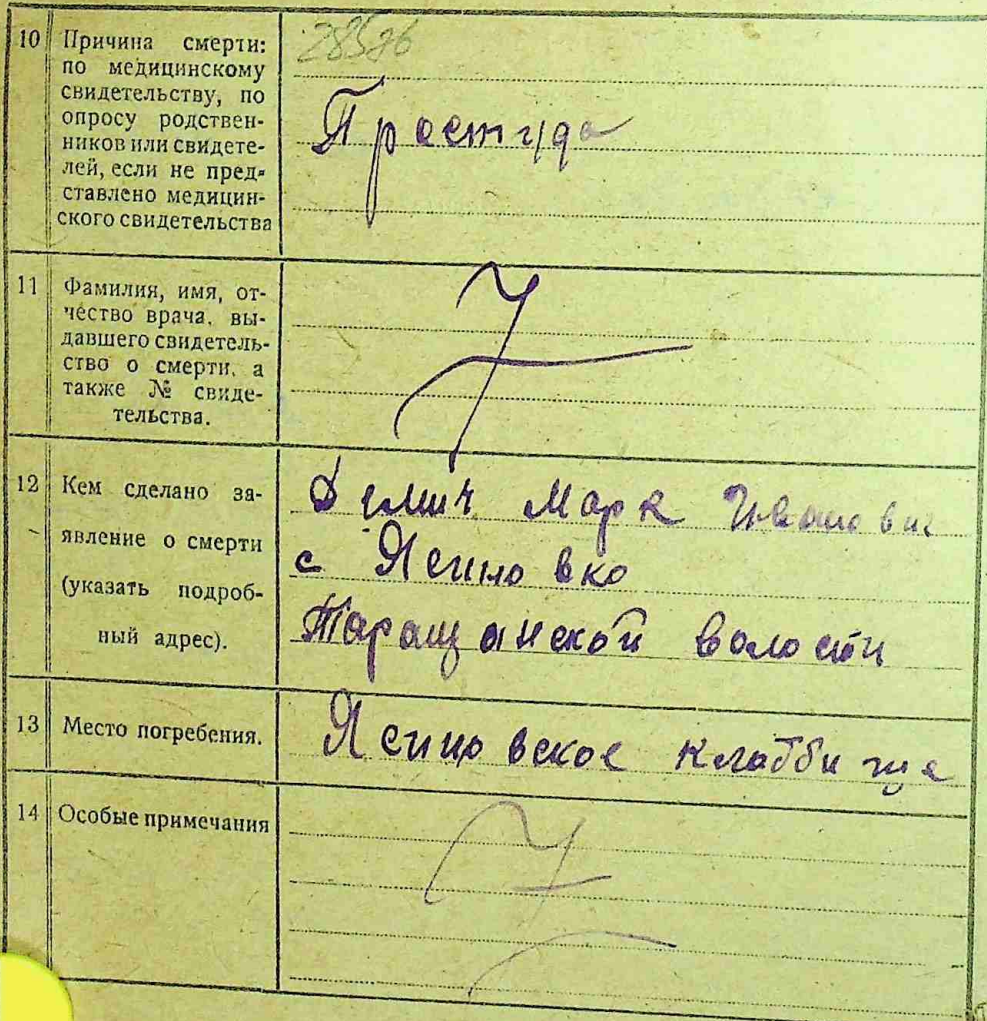 10 Причина смерти: 28576
по медицинскому
свидетельству, по
опросу родствен-
ников или свидете- Простуда
лей, если не пред-
ставлено медицин-
ского свидетельства
11 Фамилия, имя, от-
чество врача, вы-
давшего свидетель-
ство о смерти, а
также № свиде-
тельства.
12 Кем сделано за-
явление о смерти
(указать подроб-
ный адрес).
Демич Марк Иванович
с Ясиновко
Таращанской волости
13 Место погребения.
Ясиновское кладбище
14 Особые примечания